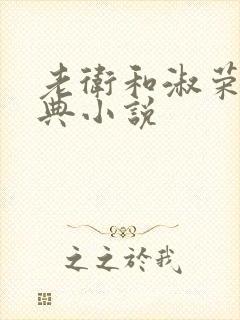 老衛和淑荣
典小說
之之於我